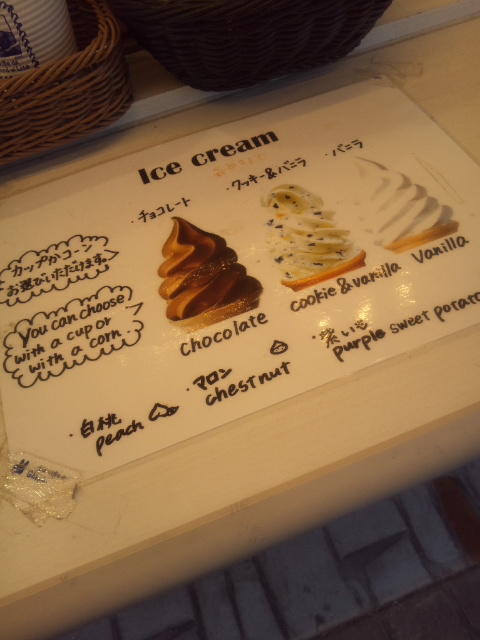 Ice cream
・チョコレート
・クッキー&バニラ
・バニラ
カップかコーン
お選びいただけます。
You can choose
with a cup or
with a corn.
chocolate
cookie & vanilla
Vanilla
・白桃
peach
・マロン
chestnut
・紫いも
purple sweet potato